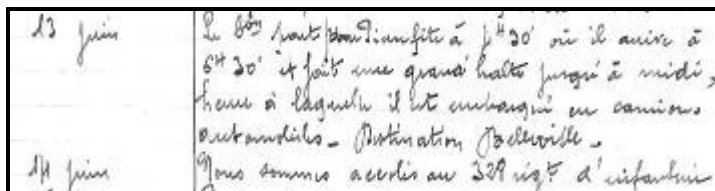 13 juin Le 8ème part pour Dieufite à 4H30' où il arrive à
6H30' et fait une grand' halte jusqu'à midi,
heure à laquelle il est embarqué en camions
automobiles. Destination Belleville.
14 juin Nous sommes accolés au 328 régt d'infanterie